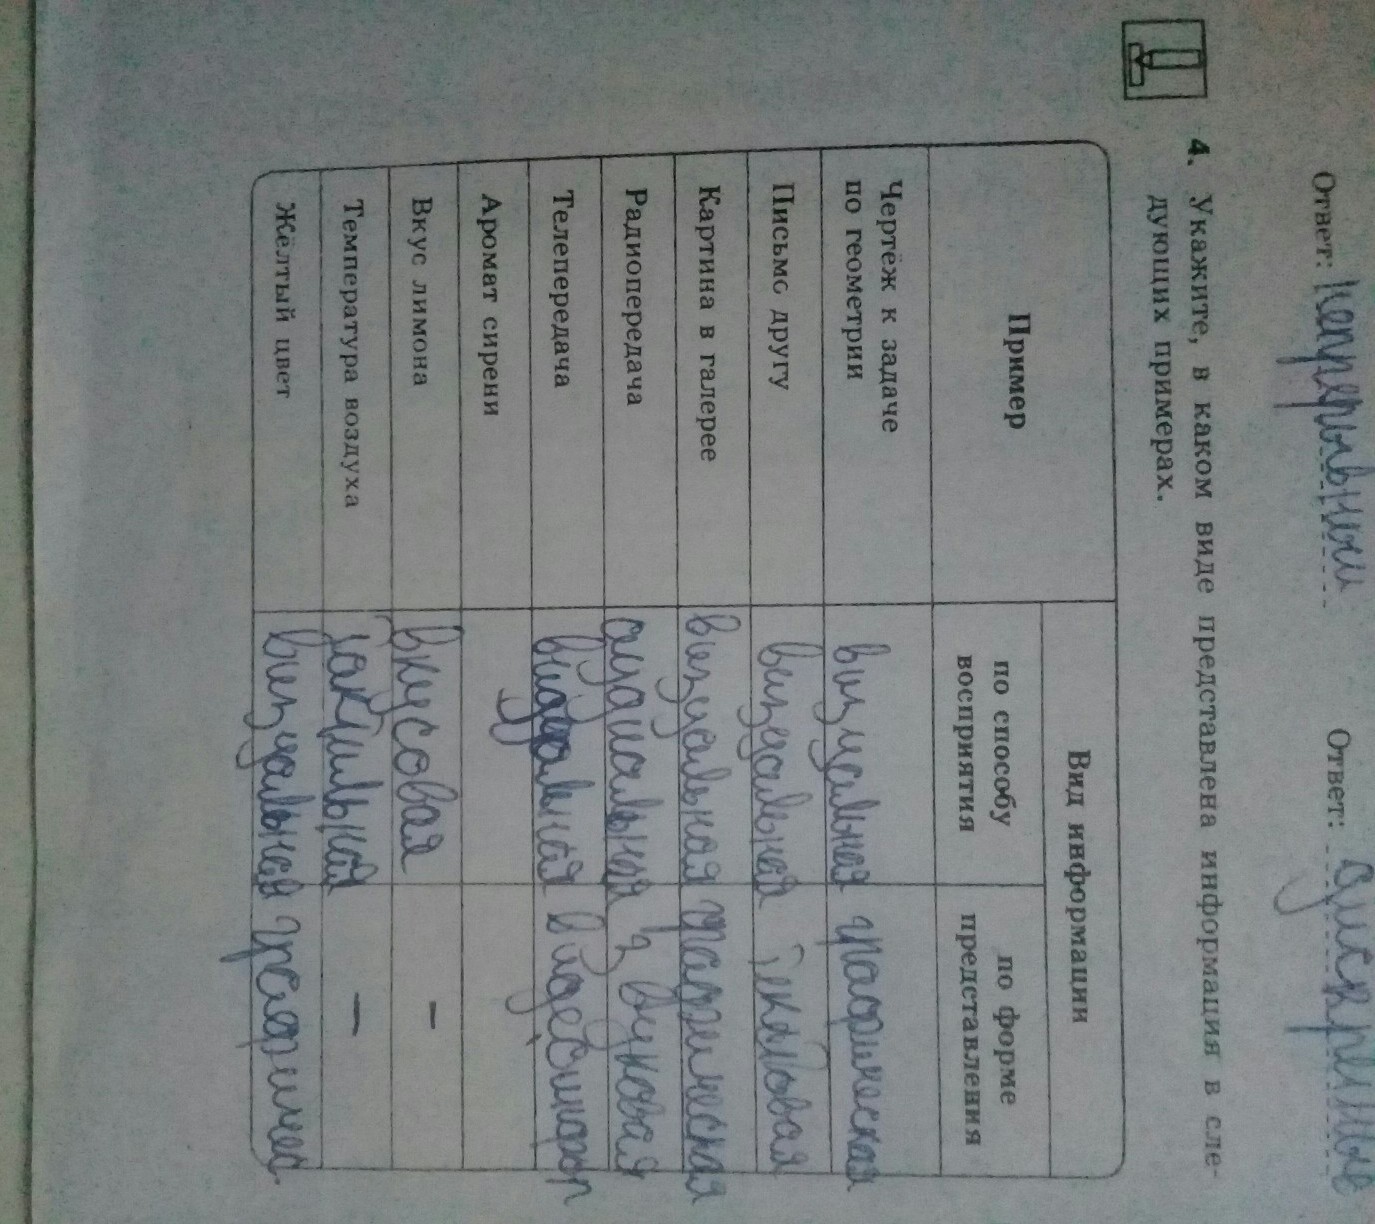 Ответ: непрерывный Ответ: дискретные
4. Укажите, в каком виде представлена информация в сле-
дующих примерах.
Пример
Вид информации
по способу
восприятия
по форме
представления
Чертёж к задаче
по геометрии
визуальная графическая
Письмо другу визуальная текстовая
Картина в галерее визуальная графическая
Радиопередача аудиальная звуковая
Телепередача видеоинфор
Аромат сирени
Вкус лимона вкусовая –
Температура воздуха тактильная –
Жёлтый цвет визуальная графичес